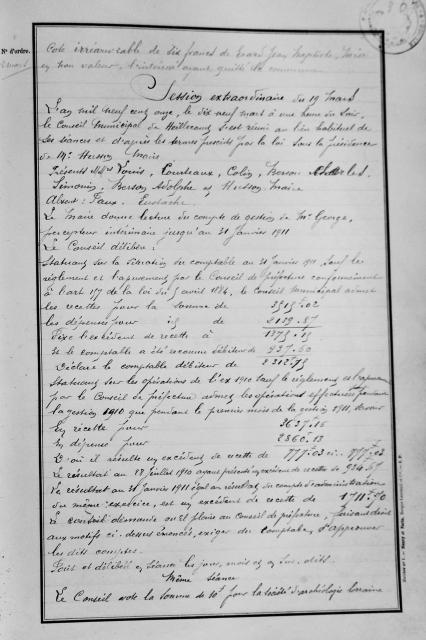 N° d'ordre.
Cote irrécouvrable de six francs de Evard Jean Baptiste, Mise
en non valeur, l'intéressé ayant quitté la commune
Session extraordinaire du 19 Mars
L'an mil neuf cent onze, le dix neuf mars à une heure du soir,
le Conseil Municipal de s'est réuni au lieu habituel de
ses séances et d'après les termes prescrits par la loi sous la présidence
de Mr Husson Maire
Présents MM. Voirin, Comteaux, Colin, Kerson Charles,
Simonin, Kerson Adolphe et Husson Maire
Absent: Eustache.
Le Maire donne lecture du compte de gestion de Mr George,
percepteur intérimaire jusqu'au 31 Janvier 1911
Le Conseil délibère:
Statuant sur la situation du comptable au 31 Janvier 1911 sauf le
règlement et l'apurement par le Conseil de préfecture conformément
à l'art 157 de la loi du 5 avril 1884, le Conseil Municipal admet
les recettes pour la somme de 3515f.02
les dépenses pour id de 2139.87
Fixe l'excédent de recette à 1375.15
Et le comptable a été reconnu débiteur de 937.60
Déclare le comptable débiteur de 2312.75
Statuant sur les opérations de l'ex 1910 sauf le règlement et l'apurement
par le Conseil de préfecture admet les opérations effectuées pendant
la gestion 1910 que pendant le premier mois de la gestion 1911, savoir
En recette pour 3637.16
En dépense pour 2860.13
D'où il résulte un excédent de recette de 777.03 ci: 777f.03
Le résultat au 1910 ayant présenté un excédent de recette de 934.87
Le résultat au 31 Janvier 1911 égal au résultat du compte d'administration
du même exercice, est un excédent de recette de 1711f.90
Le conseil demande qu'il plaise au Conseil de préfecture, faisant droit
aux motifs ci-dessus énoncés, exiger du comptable, d'approuver
les dits comptes.
Fait et délibéré en séance les jour, mois et an sus dits.
Même séance
Le Conseil vote la somme de 10f pour la Société d'archéologie lorraine